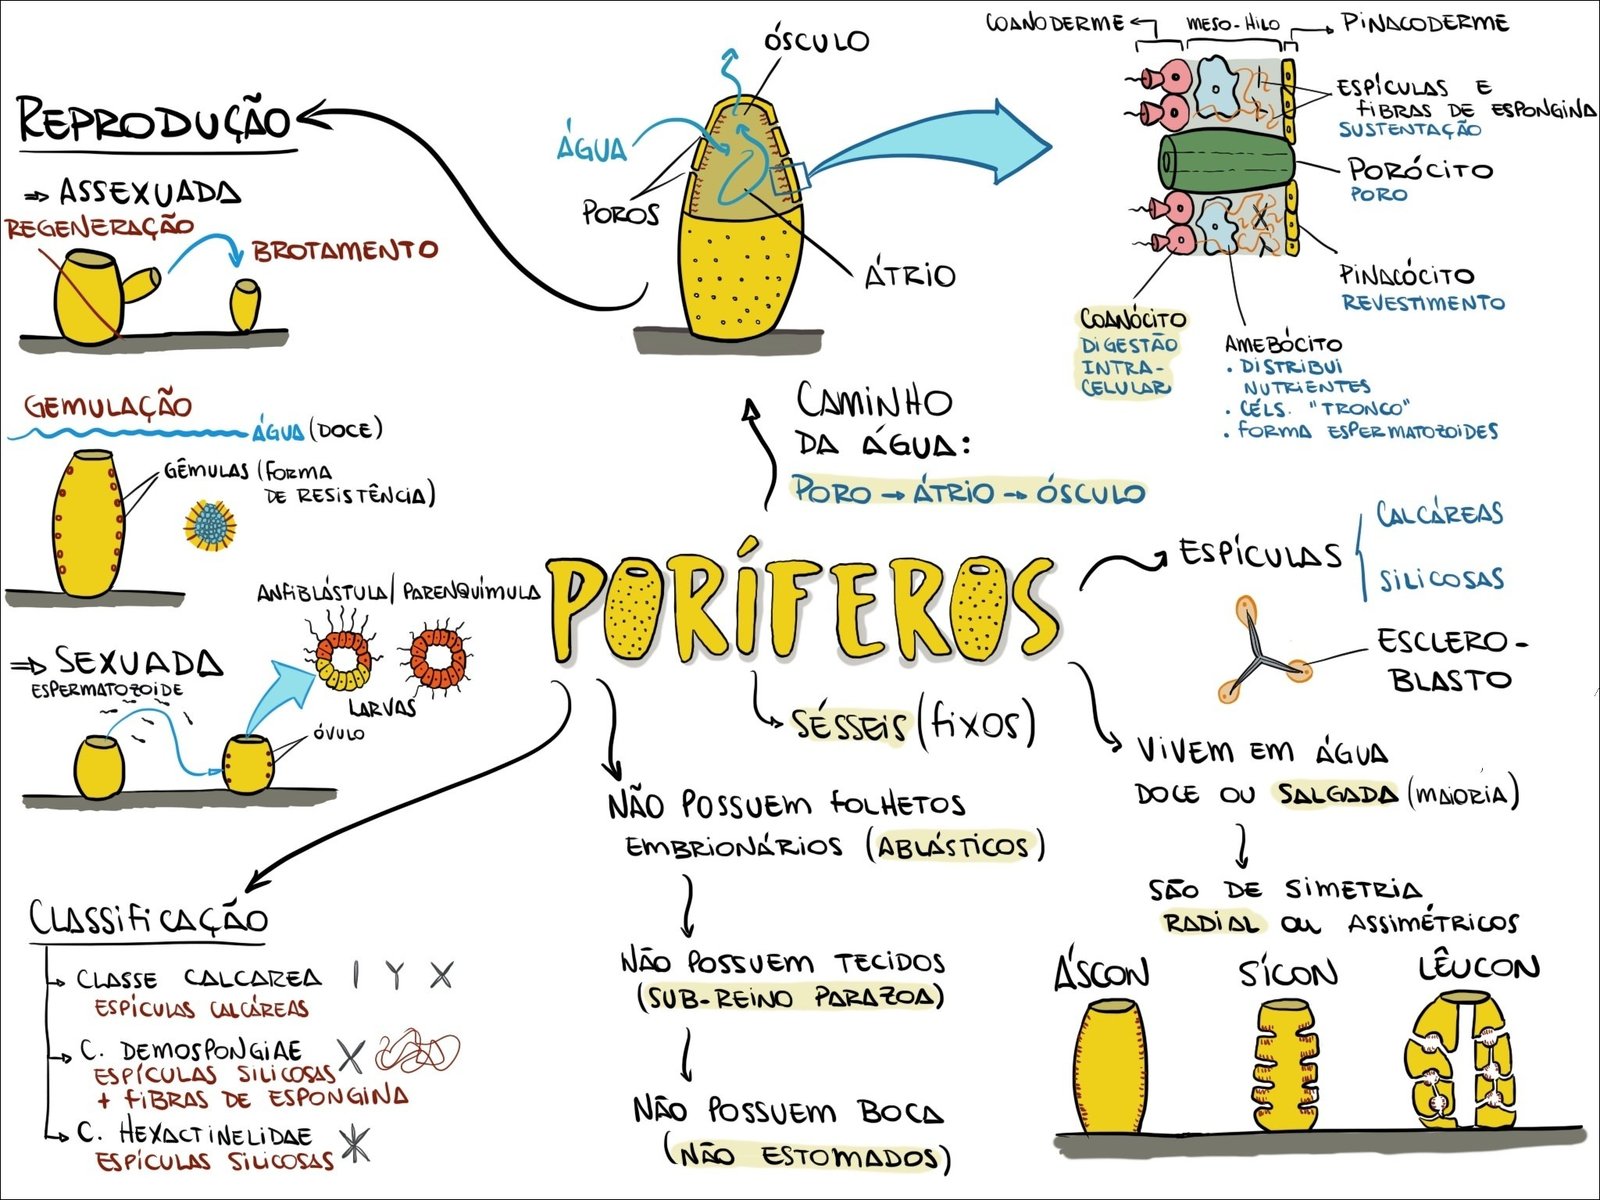 REPRODUÇÃO
⇒ ASSEXUADA
REGENERAÇÃO
BROTAMENTO
GEMULAÇÃO
ÁGUA (DOCE)
GÊMULAS (FORMA
DE RESISTÊNCIA)
ANFIBLÁSTULA / PARENQUÍMULA
LARVAS
⇒ SEXUADA
ESPERMATOZOIDE
ÓVULO
ÓSCULO
ÁGUA
POROS
ÁTRIO
COANODERME
MESO-HILO
PINACODERME
ESPÍCULAS E
FIBRAS DE ESPONGINA
SUSTENTAÇÃO
PORÓCITO
PORO
PINACÓCITO
REVESTIMENTO
COANÓCITO
DIGESTÃO
INTRA-
CELULAR
AMEBÓCITO
• DISTRIBUI
NUTRIENTES
• CÉLS. "TRONCO"
• FORMA ESPERMATOZOIDES
CAMINHO
DA ÁGUA:
PORO → ÁTRIO → ÓSCULO
PORÍFEROS
ESPÍCULAS
CALCÁREAS
SILICOSAS
ESCLERO-
BLASTO
SÉSSEIS (FIXOS)
VIVEM EM ÁGUA
DOCE OU SALGADA (MAIORIA)
SÃO DE SIMETRIA
RADIAL OU ASSIMÉTRICOS
ÁSCON
SÍCON
LÊUCON
NÃO POSSUEM FOLHETOS
EMBRIONÁRIOS (ABLÁSTICOS)
NÃO POSSUEM TECIDOS
(SUB-REINO PARAZOA)
NÃO POSSUEM BOCA
(NÃO ESTOMADOS)
CLASSIFICAÇÃO
CLASSE CALCAREA
ESPÍCULAS CALCÁREAS
C. DEMOSPONGIAE
ESPÍCULAS SILICOSAS
+ FIBRAS DE ESPONGINA
C. HEXACTINELIDAE
ESPÍCULAS SILICOSAS